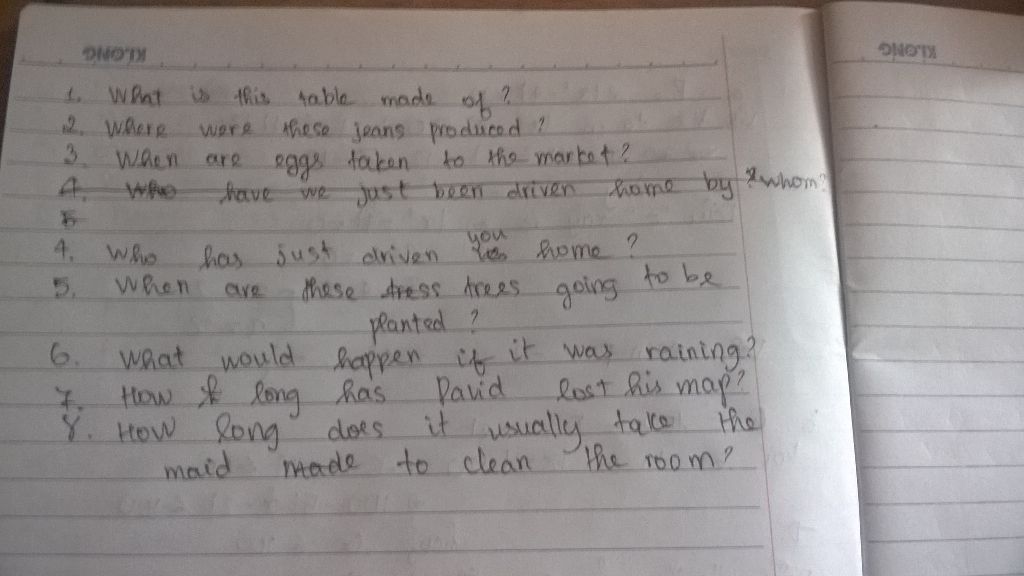 KLONG
KLONG
1. What is this table made of?
2. Where were these jeans produced?
3. When are eggs taken to the market?
4. Who have we just been driven home by? whom?
5
4. Who has just driven you home?
5. When are these tress trees going to be
planted?
6. What would happen if it was raining?
7. How long has David lost his map?
8. How long does it usually take the
maid made to clean the room?